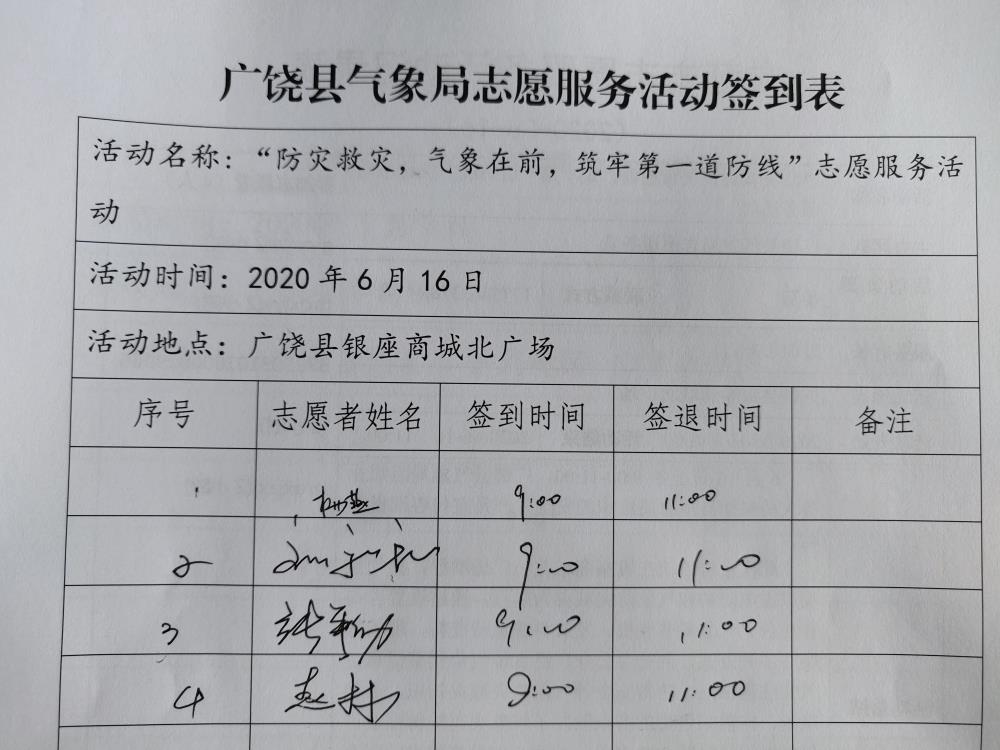 广饶县气象局志愿服务活动签到表
活动名称：“防灾救灾，气象在前，筑牢第一道防线”志愿服务活
动
活动时间：2020 年 6 月 16 日
活动地点：广饶县银座商城北广场
序号 志愿者姓名 签到时间 签退时间 备注
1 9:00 11:00
2 9:00 11:00
3 9:00 11:00
4 赵林 9:00 11:00